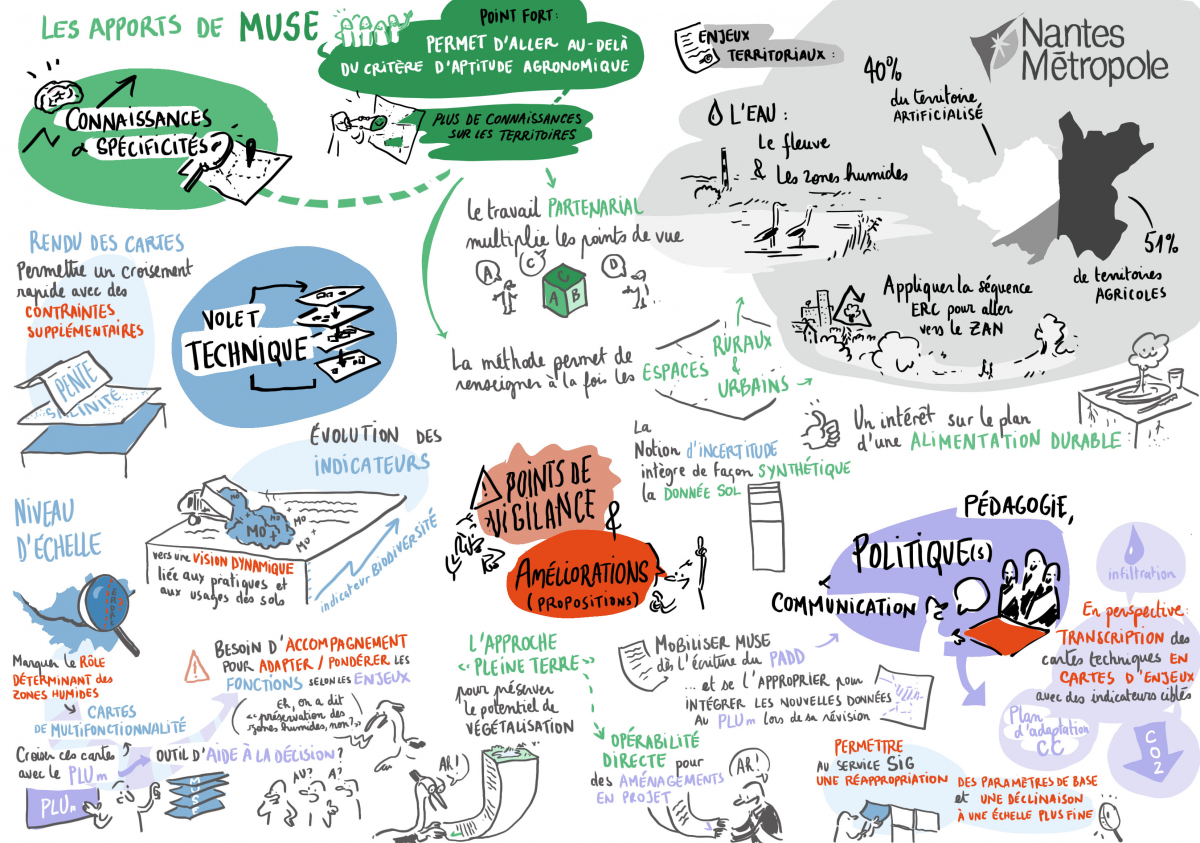 LES APPORTS DE MUSE
POINT FORT :
PERMET D'ALLER AU-DELÀ
DU CRITÈRE D'APTITUDE AGRONOMIQUE
PLUS DE CONNAISSANCES
SUR LES TERRITOIRES
CONNAISSANCES
& SPÉCIFICITÉS
ENJEUX
TERRITORIAUX :
Nantes
Métropole
40%
du territoire
ARTIFICIALISÉ
L'EAU :
Le fleuve
& Les zones humides
51%
de territoires
AGRICOLES
Appliquer la séquence
ERC pour aller
vers le ZAN
Le travail PARTENARIAL
multiplie les points de vue
A
C
D
C
A B
La méthode permet de
renseigner à la fois les
ESPACES
RURAUX
&
URBAINS
RENDU DES CARTES
Permettre un croisement
rapide avec des
CONTRAINTES
SUPPLÉMENTAIRES
PENTE
SALINITÉ
VOLET
TECHNIQUE
Un intérêt sur le plan
d'une ALIMENTATION DURABLE
La
Notion d'INCERTITUDE
intègre de façon SYNTHÉTIQUE
la DONNÉE SOL
ÉVOLUTION DES
INDICATEURS
MO
MO
MO
MO +
MO +
vers une VISION DYNAMIQUE
liée aux pratiques et
aux usages des sols
indicateur BIODIVERSITÉ
POINTS DE
VIGILANCE
&
AMÉLIORATIONS
(PROPOSITIONS)
NIVEAU
D'ÉCHELLE
Marquer le RÔLE
DÉTERMINANT des
ZONES HUMIDES
CARTES
DE MULTIFONCTIONNALITÉ
Croiser ces cartes
avec le PLUm
PLUm
OUTIL D'AIDE À LA DÉCISION ?
MUSE
BESOIN D'ACCOMPAGNEMENT
POUR ADAPTER / PONDÉRER LES
FONCTIONS SELON LES ENJEUX
Eh, on a dit
"préservation des
zones humides, non ?"
AU ?
A ?
L'APPROCHE
"PLEINE TERRE"
pour préserver
le potentiel de
VÉGÉTALISATION
AR !
OPÉRABILITÉ
DIRECTE pour
des AMÉNAGEMENTS
EN PROJET
AR !
PÉDAGOGIE,
POLITIQUE(S)
COMMUNICATION
MOBILISER MUSE
dès l'écriture du PADD
... et se l'APPROPRIER pour
INTÉGRER LES NOUVELLES DONNÉES
AU PLUm lors de sa révision
infiltration
En perspective :
TRANSCRIPTION des
cartes techniques EN
CARTES D'ENJEUX
avec des indicateurs ciblés
Plan
d'adaptation
CC
CO2
PERMETTRE
AU SERVICE SIG
UNE RÉAPPROPRIATION
DES PARAMÈTRES DE BASE
et UNE DÉCLINAISON
À UNE ÉCHELLE PLUS FINE